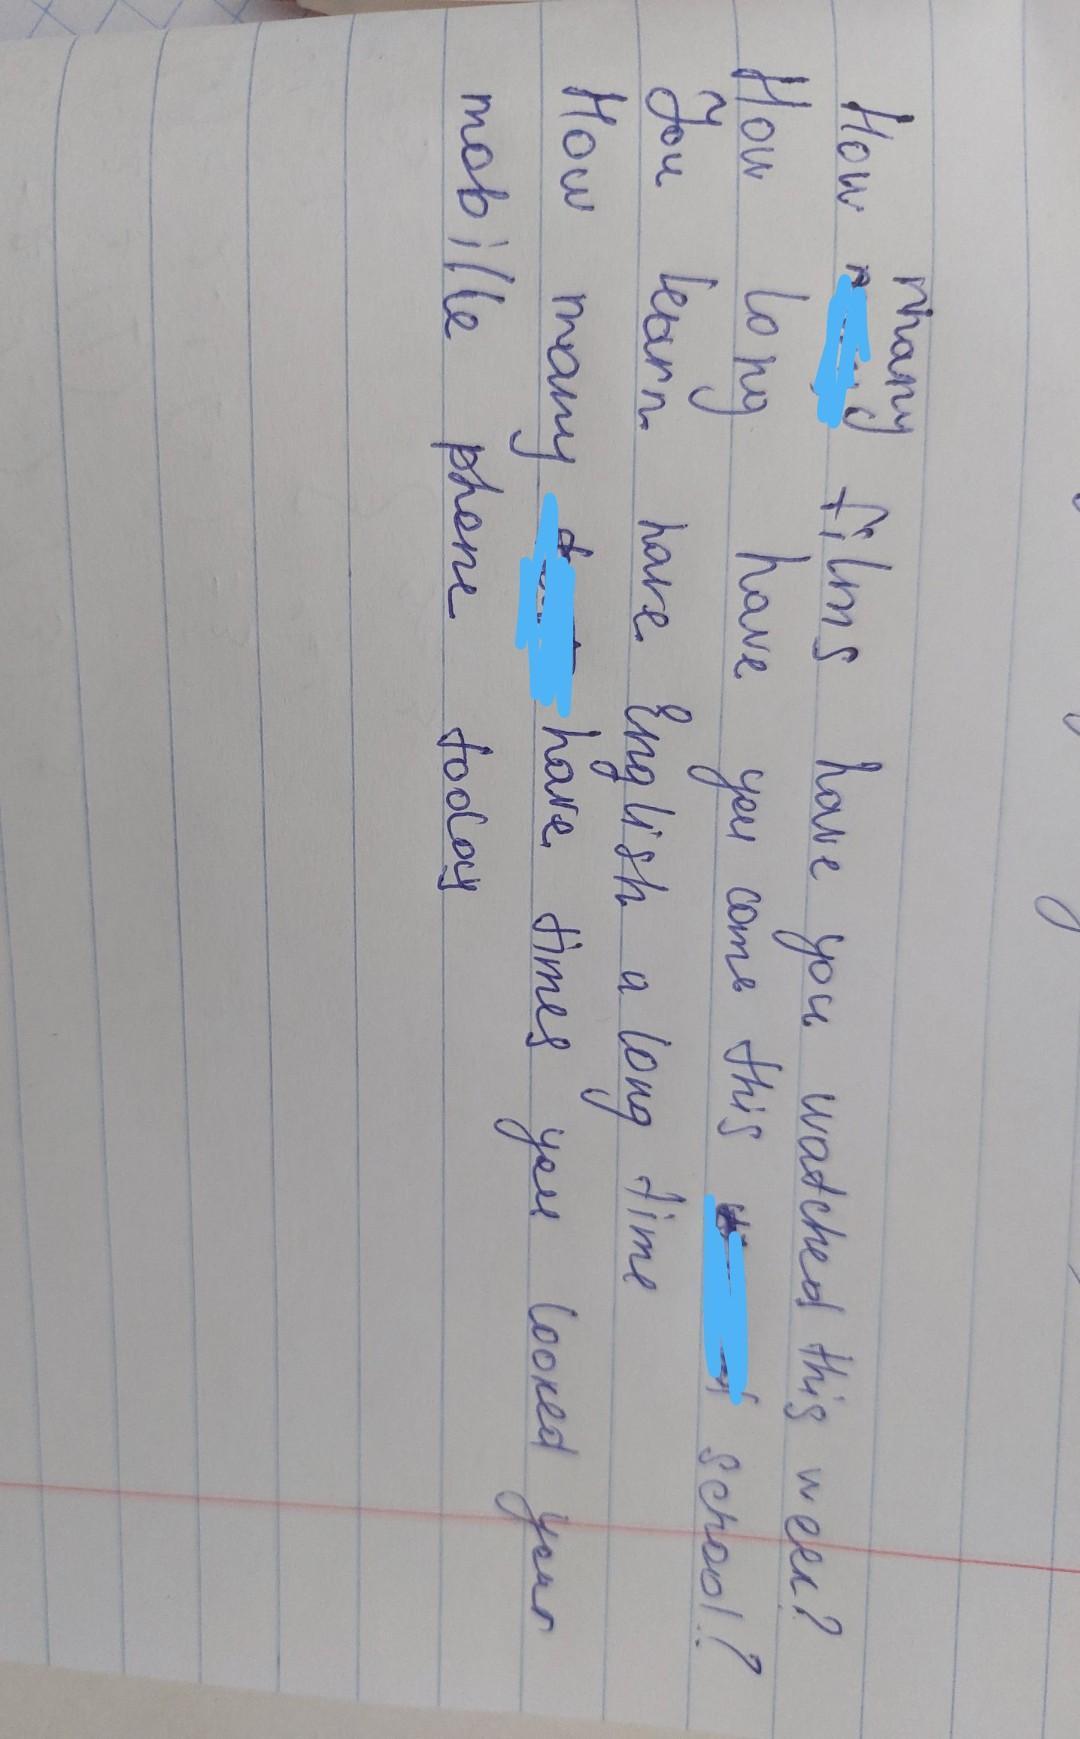 many
How films have you watched this week?
How long have you come this school?
You learn have English a long time
How many have times you looked your
mobille phone today